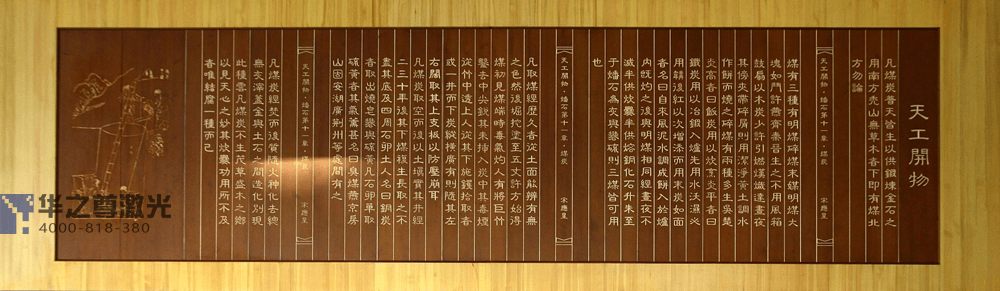 天工開物
凡煤炭普天皆生以供鍛煉金石之
用南方禿山無草木者下即有煤北
方勿論
《天工開物·燔石第十一章·煤炭 宋應星》
煤有三種有明煤碎煤末煤明煤大
塊如鬥許燕齊秦晉生之不用風箱
鼓扇以木炭少許引燃熯熾達晝夜
其傍夾帶碎屑則用潔淨黃土調水
作餅而燒之碎煤有兩種多生吳楚
炎高者曰飯炭用以炊烹炎平者曰
鐵炭用以冶鍛入爐先用水沃濕必
用鞴後紅以次增添而用末炭如面
者名曰自來風泥水調成餅入於爐
內既灼之後與明煤相同經晝夜不
滅半供炊爨半供熔銅化石升朱至
于燔石為灰與礬硫則三煤皆可用
也
《天工開物·燔石第十一章·煤炭 宋應星》
凡取煤經歷久者從土面能辨有無
之色然後掘挖深至五丈許方始得
煤初見煤端時毒氣灼人有將巨竹
鑿去中尖銳其末插入炭中其毒煙
從竹中透上人從其下施钁拾取者
或一井而下炭縱橫廣有則隨其左
右闊取其上支板以防壓崩耳
凡煤炭取空而後以土填實其井經
二三十年後其下煤復生長取之不
盡其底及四周石卵土人名曰銅炭
者取出燒皂礬與硫黃凡石卵單取
硫黃者其氣薰甚名曰臭煤燕京房
山固安湖廣荊州等處間有之
《天工開物·燔石第十一章·煤炭 宋應星》
凡煤炭經焚而後質隨火神化去總
無灰滓蓋金與土石之間造化別現
此種雲凡煤炭不生茂草盛木之鄉
以見天心之妙其炊爨功用所不及
者唯結腐一種而已
华之尊激光
4000-818-380